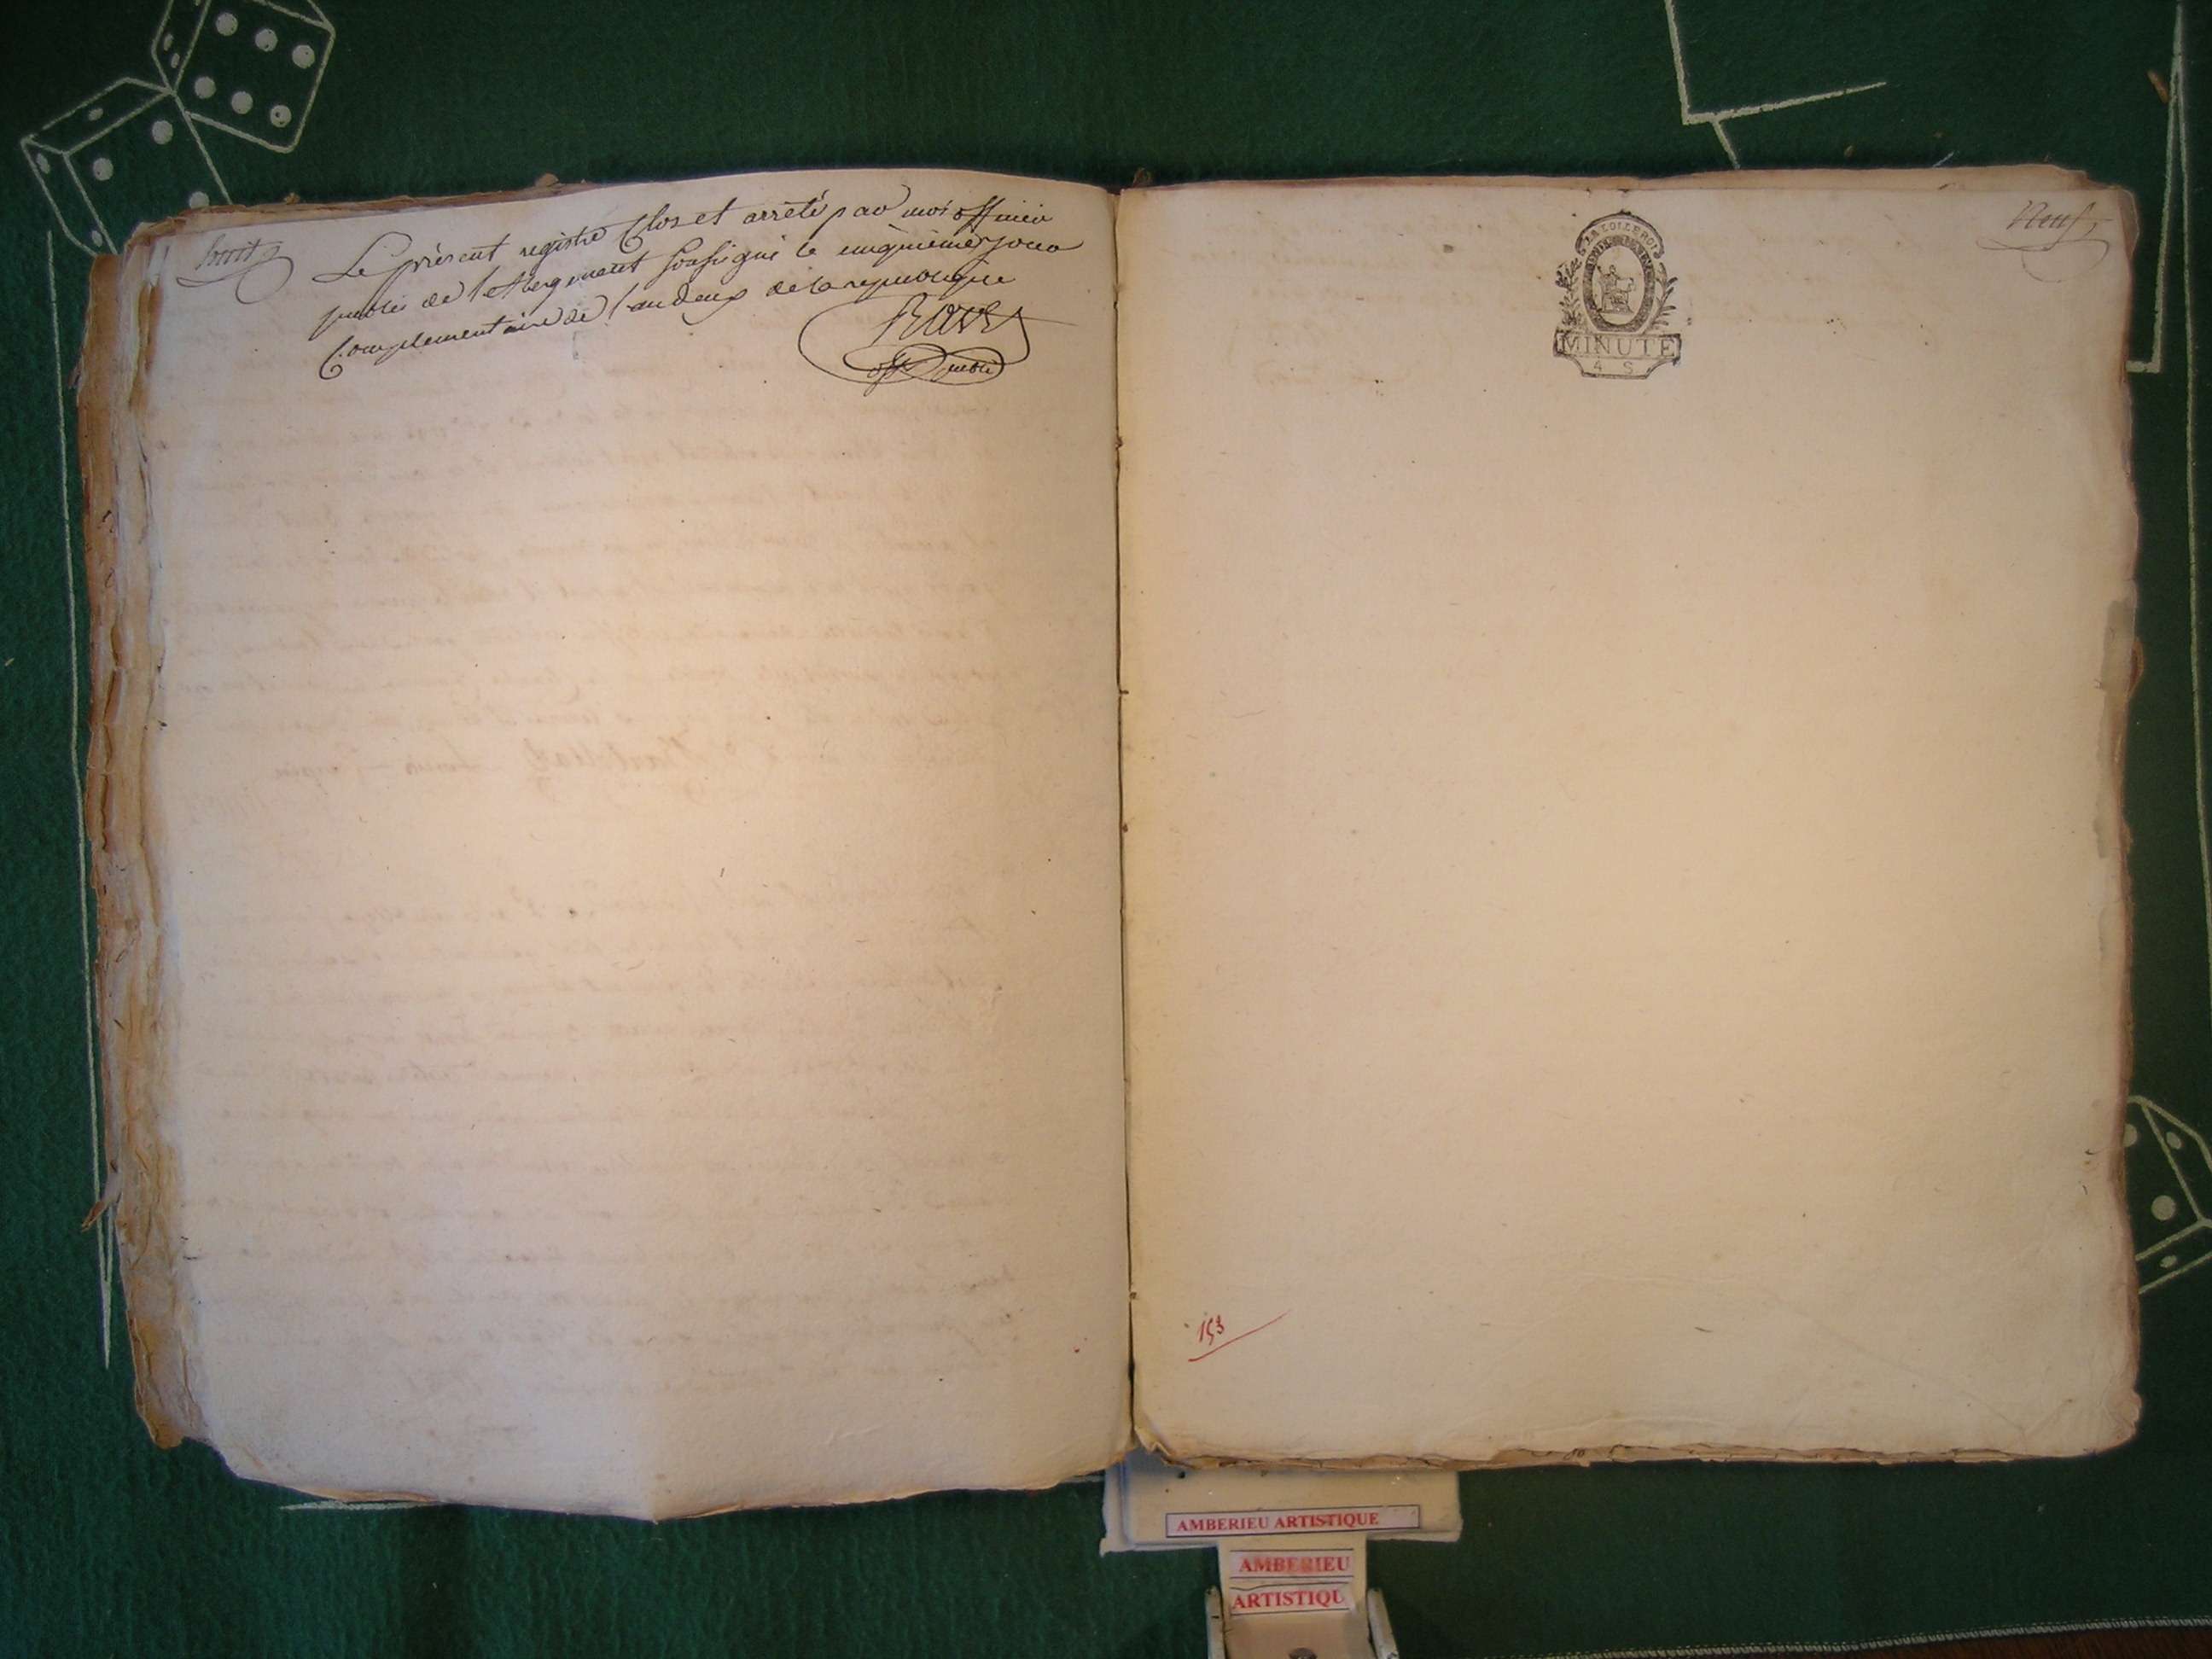 huit
Le présent registre Clos et arrêté par moi officier
public de l'abergement soussigné le cinquieme jour
Complementaire de l'an deux de la republique
RAVET
off public
Neuf
LA LOI LE ROI
MINUTE
4 S
153
AMBERIEU ARTISTIQUE
AMBERIEU
ARTISTIQU